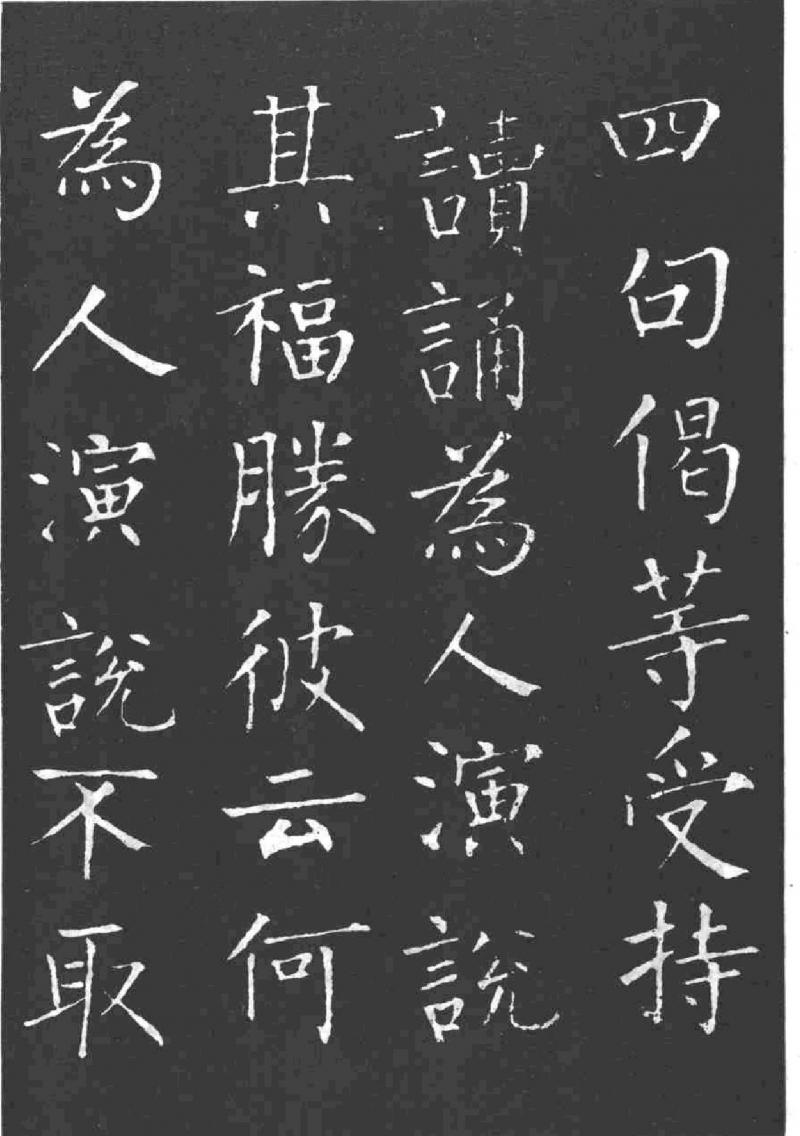 四句偈等受持
讀誦為人演說
其福勝彼云何
為人演說不取